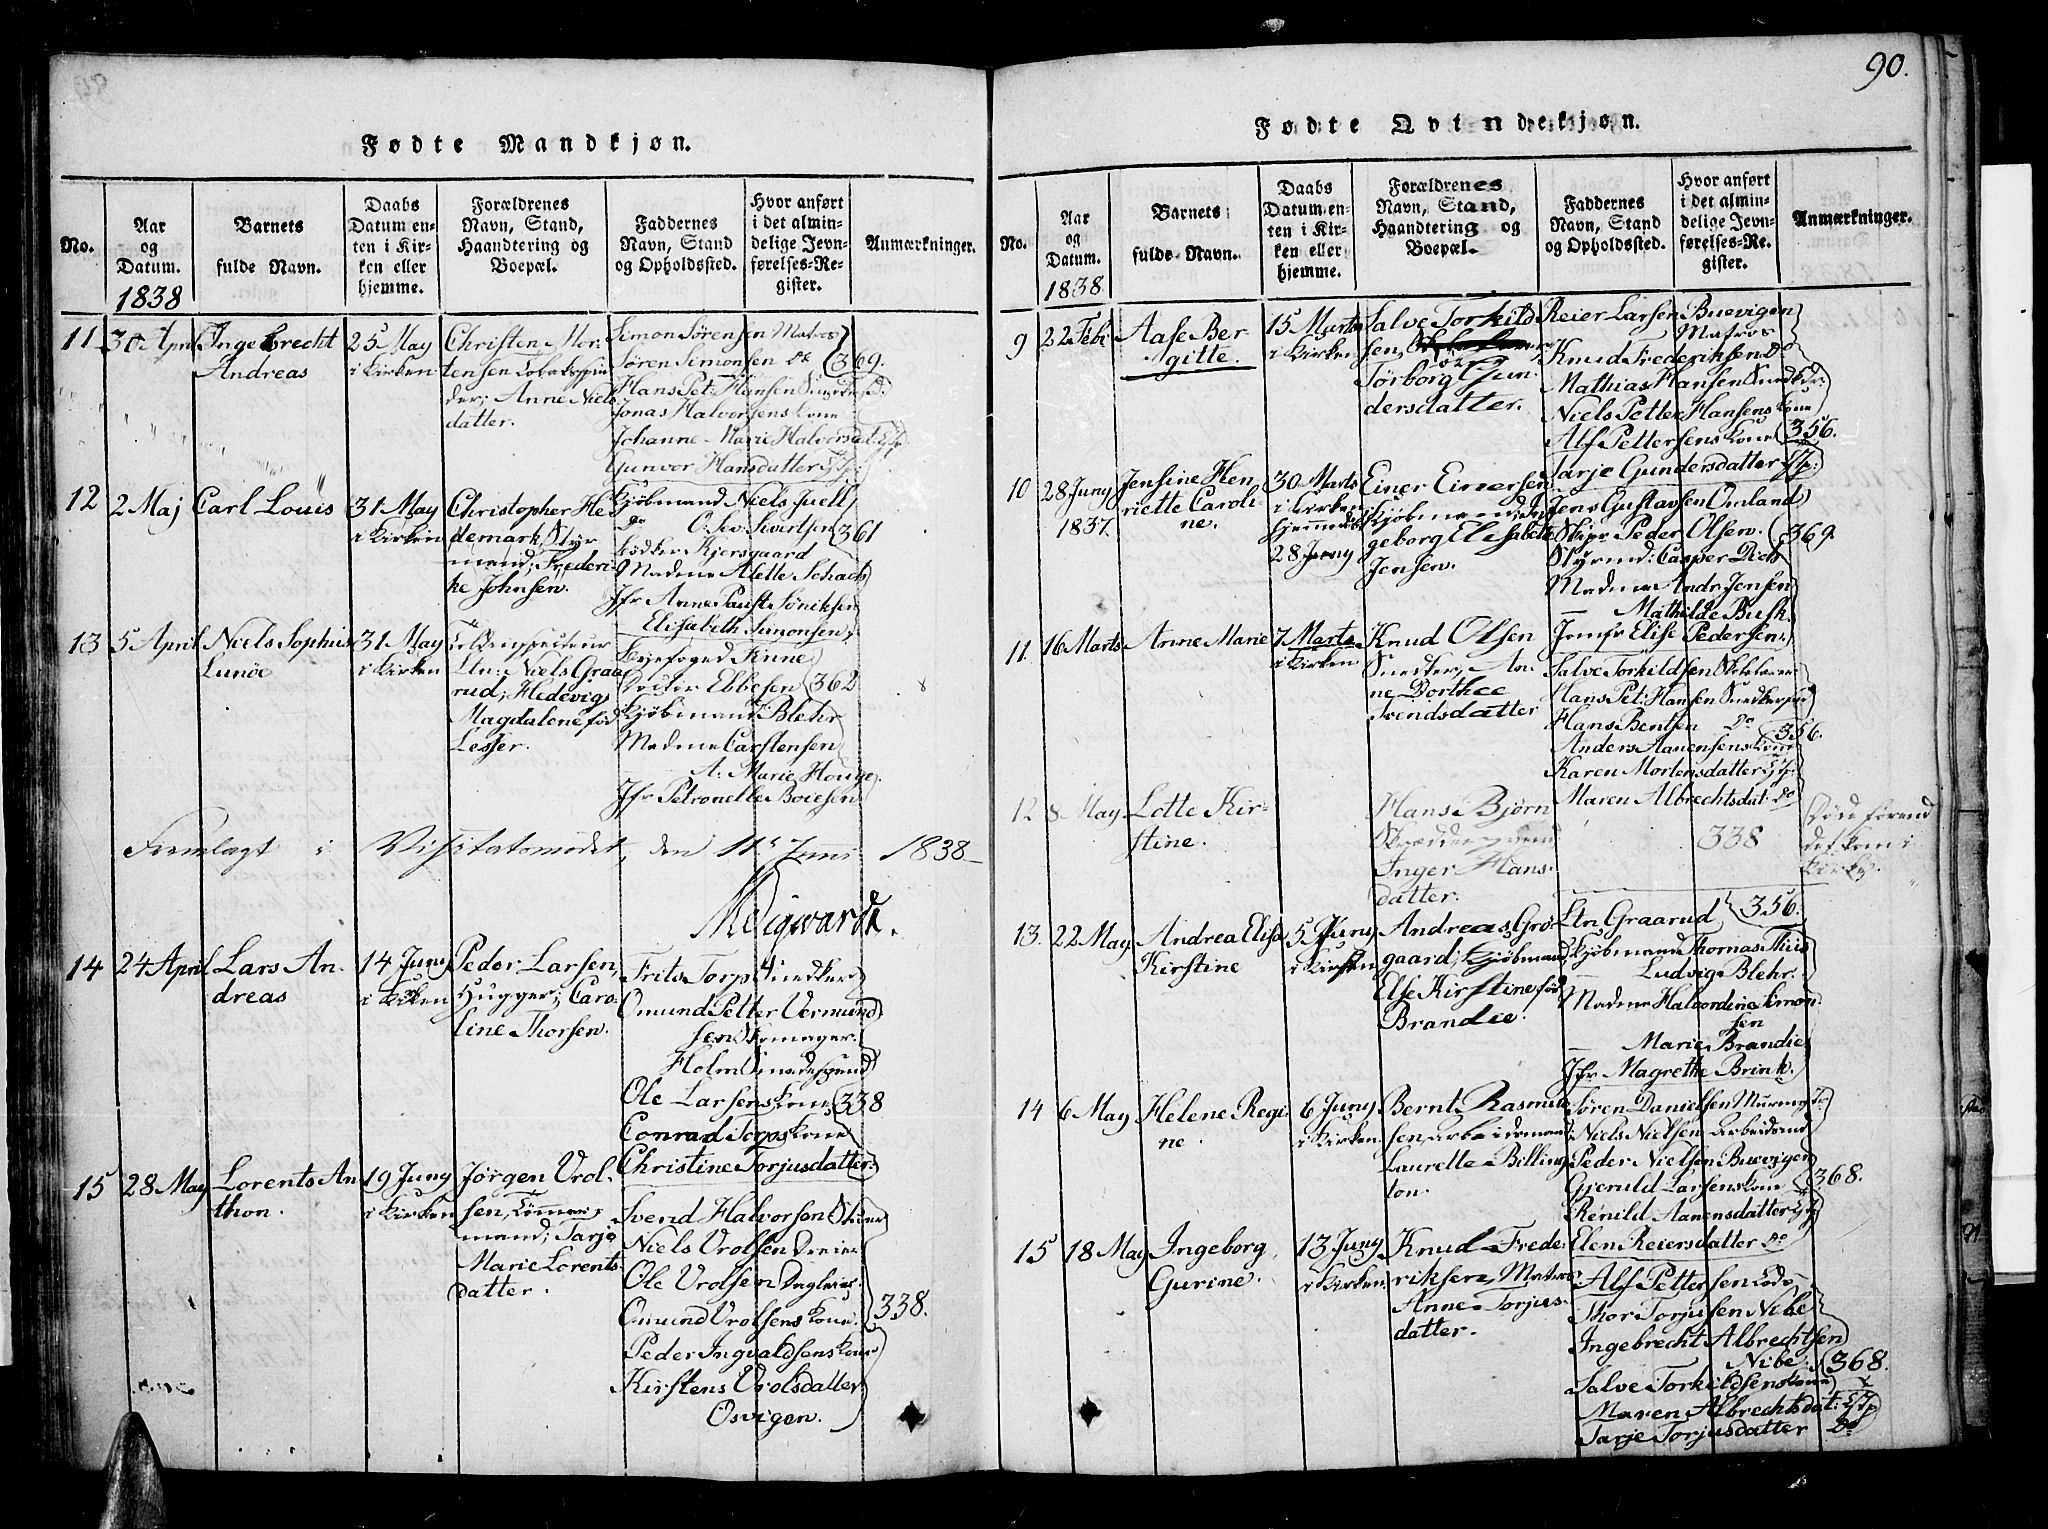 90.
Fødte Mandkjøn.
No.
Aar
og
Datum.
1838
Barnets
fulde Navn.
Daabs
Datum en-
ten i Kir-
ken eller
hjemme.
Forældrenes
Navn, Stand,
Haandtering og
Boepæl.
Faddernes
Navn, Stand
og Opholdssted.
Hvor anført
i det almin-
delige Jevn-
førelses-Re-
gister.
Anmærkninger.
11 30 April Ingebrecht
Andreas
25 May
i Kirken
Christen Mor-
tensen
Anne Niels
datter.
Simon Sørensen Matros
Søren Simonsen do
Hans Pet: Hansen
Jonas Halvorsens Kone
Johanne Marie Halvorsdat
Gunvor Hansdatter
369.
12 2 Maj Carl Louis
31 May
i Kirken
Christopher He-
demark, Styr
mand; Frederi-
ke Johnsen.
Kjøbmand Niels Juell
do O. Sv. Sivertsen
Kjersgaard
Madme Alette Schach
Jfr Anne
Elisabeth Simonsen
361
13 5 April Niels Sophus
Lunøe
31 May
i Kirken
Ltn: Niels Graa-
rud; Hedevig
Magdalene fød
Lesser.
Byefoged
Docter Ebbesen
Kjøbmand Blehr
Madme Carstensen
A. Marie Houge
Jfr Petronelle Boiesen
362
Fremlagt i Visitatsmødet, den 11te Juni 1838
14 24 April Lars An-
dreas
14 Juny
i Kirken
Peder Larsen,
Hugger; Caro-
line Thorsen.
Frits Torp Snedker
Omund Petter Vermund
sen Skomager
Holm
Ole Larsens Kone
Conrad Torps Kone
Christine Torjusdatter
338
15 28 May Lorents An
thon.
19 Juny
i Kirken
Jørgen Vrol-
sen, Tømmer-
mand; Tarje
Marie Lorents
datter.
Svend Halvorsen
Niels Vrolsen Dreier
Ole Vrolsen
Omund Vrolsens Kone
Peder Ingvaldsens Kone
Kirstens Vrolsdatter
Osvigen.
338.
Fødte Qvindekjøn.
No.
Aar
og
Datum.
1838
Barnets
fulde Navn.
Daabs
Datum en-
ten i Kir-
ken eller
hjemme.
Forældrenes
Navn, Stand,
Haandtering og
Boepæl.
Faddernes
Navn, Stand
og Opholdssted.
Hvor anført
i det almin-
delige Jevn-
førelses-Re-
gister.
Anmærkninger.
9 22 Febr Aase Ber-
gitte.
15 Marts
i Kirken
Salve Torkild
sen,
Tørborg Gun
dersdatter.
Reier Larsen Buevigen
Matros
Knud Frederiksen do
Mathias Hansen
Niels Petter Hansens Kone
Alf Pettersens Kone
Tarje Gundersdatter
356.
10 28 Juny
1837.
Jensine Hen
riette Caroli
ne.
30 Marts
i Kirken
hjemmedøbt
28 Juny
Einer Einersen
Kjøbmand; In
geborg Elisabeth
Jensen.
Jens Gustavsen Omland
Skipr Peder Olsen
Styrmd: Casper Dieh
Madme Andr: Jensen
— Mathilde Busk
Jomfr Elise Pedersen
369
11. 16 Marts Anne Marie
7 Marts
i Kirken
Knud Olsen
Snedker, An-
ne Dorthee
Svendsdatter
Salve Torkildsen
Hans Pet: Hansen
Hans Bentsen do
Anders Aanensens Kone
Karen Mortensdatter
Maren Albrechtsdat: do
356.
12 8 May Lotte Kir-
stine.
Hans Bjørn
Inger Hans-
datter.
338
Døde forend
det kom i
Kirke.
13. 22 May Andrea Elise
Kirstine
5 Juny
i Kirken
Andreas Grø-
gaard; Kjøbmand
Else Kirstine fød
Brandie.
Ltn Graarud
Kjøbmand Thomas
Ludvig Blehr.
Madme Halvordine Simon
sen
— Marie Brandie
Jfr Magrethe Brink.
356.
14 6 May Helene Regi
ne
6 Juny
i Kirken
Bernt Rasmus
sen, Arbeidsmand
Laurette Billing
ton.
Søren Danielsen
Niels Nielsen Arbeidsmd
Peder Nielsen Buevigen
Gjeruld Larsens Kone
Renild Aanensdatter
Elen Reiersdatter do
368.
15 18 May Ingeborg
Gurine.
13 Juny
i Kirken
Knud Frede-
riksen, Matros
Anne Torjus-
datter.
Alf Pettersen Lods
Thor Torjusen Nibe
Ingebrecht Albrechtsen
Nibe
Salve Torkildsens Kone
Maren Albrechtsdat:
Tarje Torjusdatter do
368.